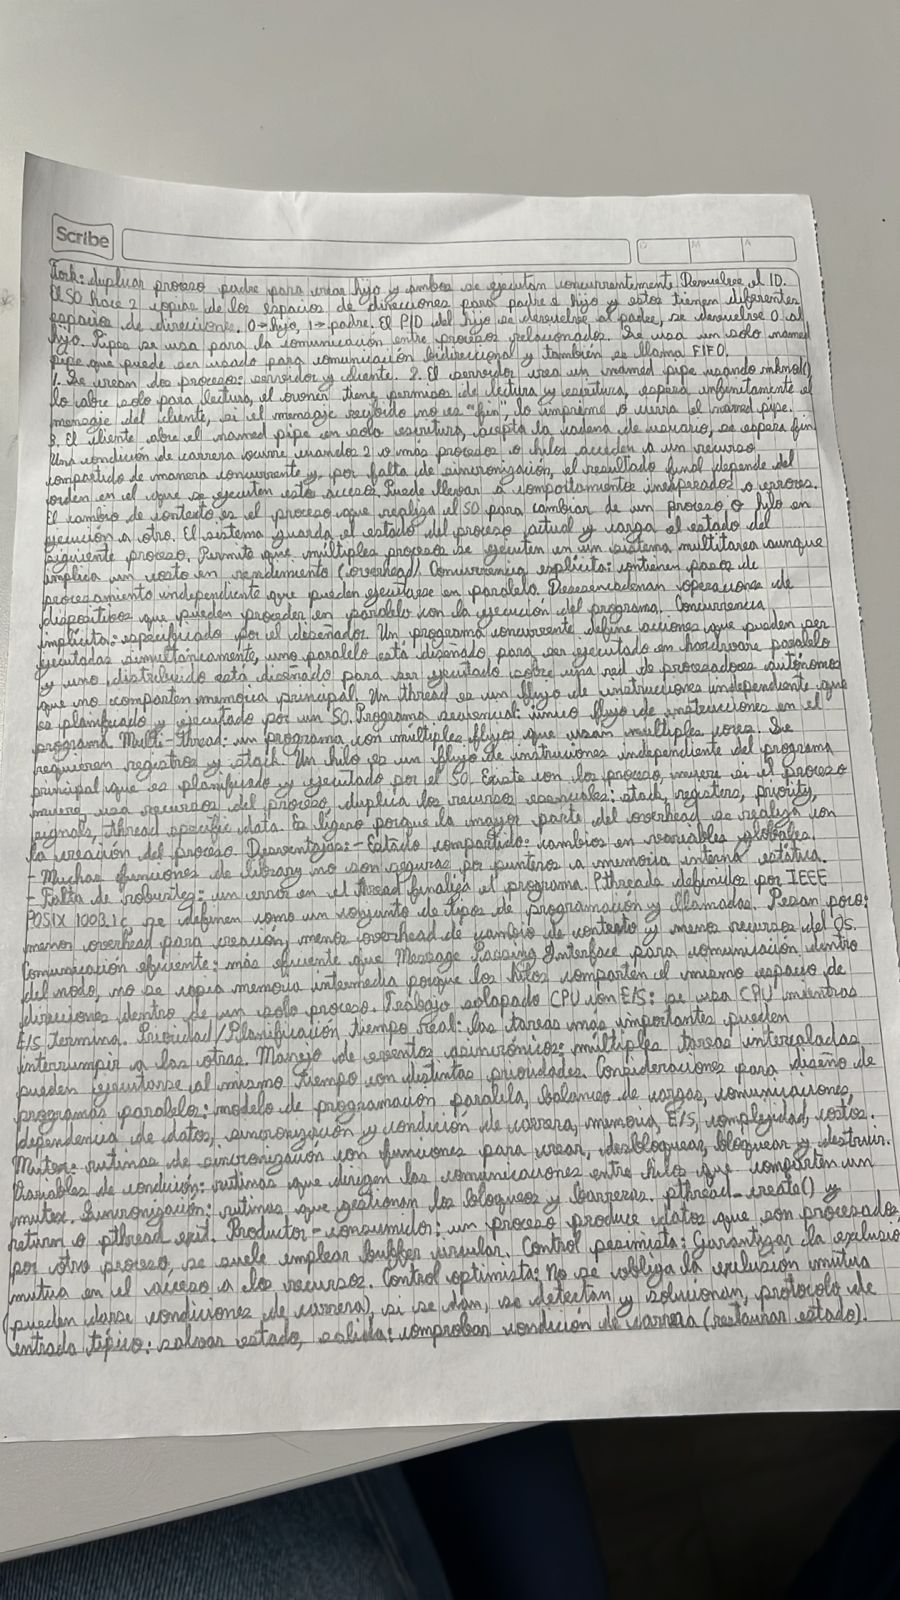 Scribe
D M A
Fork: duplicar proceso padre para crear hijo y ambos se ejecutan concurrentemente. Devuelve el ID.
El SO hace 2 copias de los espacios de direcciones para padre e hijo y estos tienen diferentes
espacios de direcciones. 0→hijo, 1→padre. El PID del hijo se devuelve al padre, se devuelve 0 al
hijo. Pipes se usa para la comunicación entre procesos relacionados. Se usa un solo named
pipe que puede ser usado para comunicación bidireccional y también se llama FIFO.
1. Se crean dos procesos: servidor y cliente. 2. El servidor crea un named pipe usando mknod(),
lo abre solo para lectura, el owner tiene permisos de lectura y escritura, espera infinitamente el
mensaje del cliente, si el mensaje recibido no es "fin", lo imprime o cierra el named pipe.
3. El cliente abre el named pipe en solo escritura, acepta la cadena de usuario, se espera fin
Una condición de carrera ocurre cuando 2 o más procesos o hilos acceden a un recurso
compartido de manera concurrente y, por falta de sincronización, el resultado final depende del
orden en el que se ejecuten estos accesos. Puede llevar a comportamientos inesperados o errores.
El cambio de contexto es el proceso que realiza el SO para cambiar de un proceso o hilo en
ejecución a otro. El sistema guarda el estado del proceso actual y carga el estado del
siguiente proceso. Permite que múltiples procesos se ejecuten en un sistema multitarea aunque
implica un costo en rendimiento (overhead). Concurrencia explícita: contienen pasos de
procesamiento independiente que pueden ejecutarse en paralelo. Desencadenan operaciones de
dispositivos que pueden proceder en paralelo con la ejecución del programa. Concurrencia
implícita: especificado por el diseñador. Un programa concurrente define acciones que pueden ser
ejecutadas simultáneamente, uno paralelo está diseñado para ser ejecutado en hardware paralelo
y uno distribuido está diseñado para ser ejecutado sobre una red de procesadores autónomos
que no comparten memoria principal. Un thread es un flujo de instrucciones independiente que
es planificado y ejecutado por un SO. Programa secuencial: único flujo de instrucciones en el
programa. Multi-thread: un programa con múltiples flujos que usan múltiples cores. Se
requieren registros y stack. Un hilo es un flujo de instruciones independiente del programa
principal que es planificado y ejecutado por el SO. Existe con los proceso, muere si el proceso
muere, usa recursos del proceso, duplica los recursos esenciales: stack, registers, priority,
signals, thread specific data. Es ligero porque la mayor parte del overhead se realiza con
la creación del proceso. Desventajas: - Estado compartido: cambios en variables globales.
- Muchas funciones de library no son seguras por punteros a memoria interna estática.
- Falta de robustez: un error en el thread finaliza el programa. Pthreads definidos por IEEE
POSIX 1003.1c se definen como un conjunto de tipos de programación y llamadas. Pesan poco:
menor overhead para creación, menos overhead de cambio de contexto y menos recursos del OS.
Comunicación eficiente: más eficiente que Message Passing Interface para comunicación dentro
del nodo, no se copia memoria intermedia porque los hilos comparten el mismo espacio de
direcciones dentro de un solo proceso. Trabajo solapado CPU con E/S: se usa CPU mientras
E/S termina. Prioridad/Planificación tiempo real: las tareas más importantes pueden
interrumpir a las otras. Manejo de eventos asincrónicos: múltiples tareas intercaladas
pueden ejecutarse al mismo tiempo con distintas prioridades. Consideraciones para diseño de
programas paralelos: modelo de programación paralela, balanceo de cargas, comunicaciones,
dependencia de datos, sincronización y condición de carrera, memoria, E/S, complejidad, costos.
Mutex: rutinas de sincronización con funciones para crear, desbloquear, bloquear y destruir.
Variables de condición: rutinas que dirigen las comunicaciones entre hilos que comparten un
mutex. Sincronización: rutinas que gestionan los bloqueos y barreras. pthread_create() y
return o pthread_exit. Productor-consumidor: un proceso produce datos que son procesados
por otro proceso, se suele emplear buffer circular. Control pesimista: Garantizar la exclusió
mutua en el acceso a los recursos. Control optimista: No se obliga la exclusión mutua
(pueden darse condiciones de carrera), si se dan, se detectan y solucionan, protocolo de
entrada típico: salvar estado, salida: comprobar condición de carrera (restaurar estado).